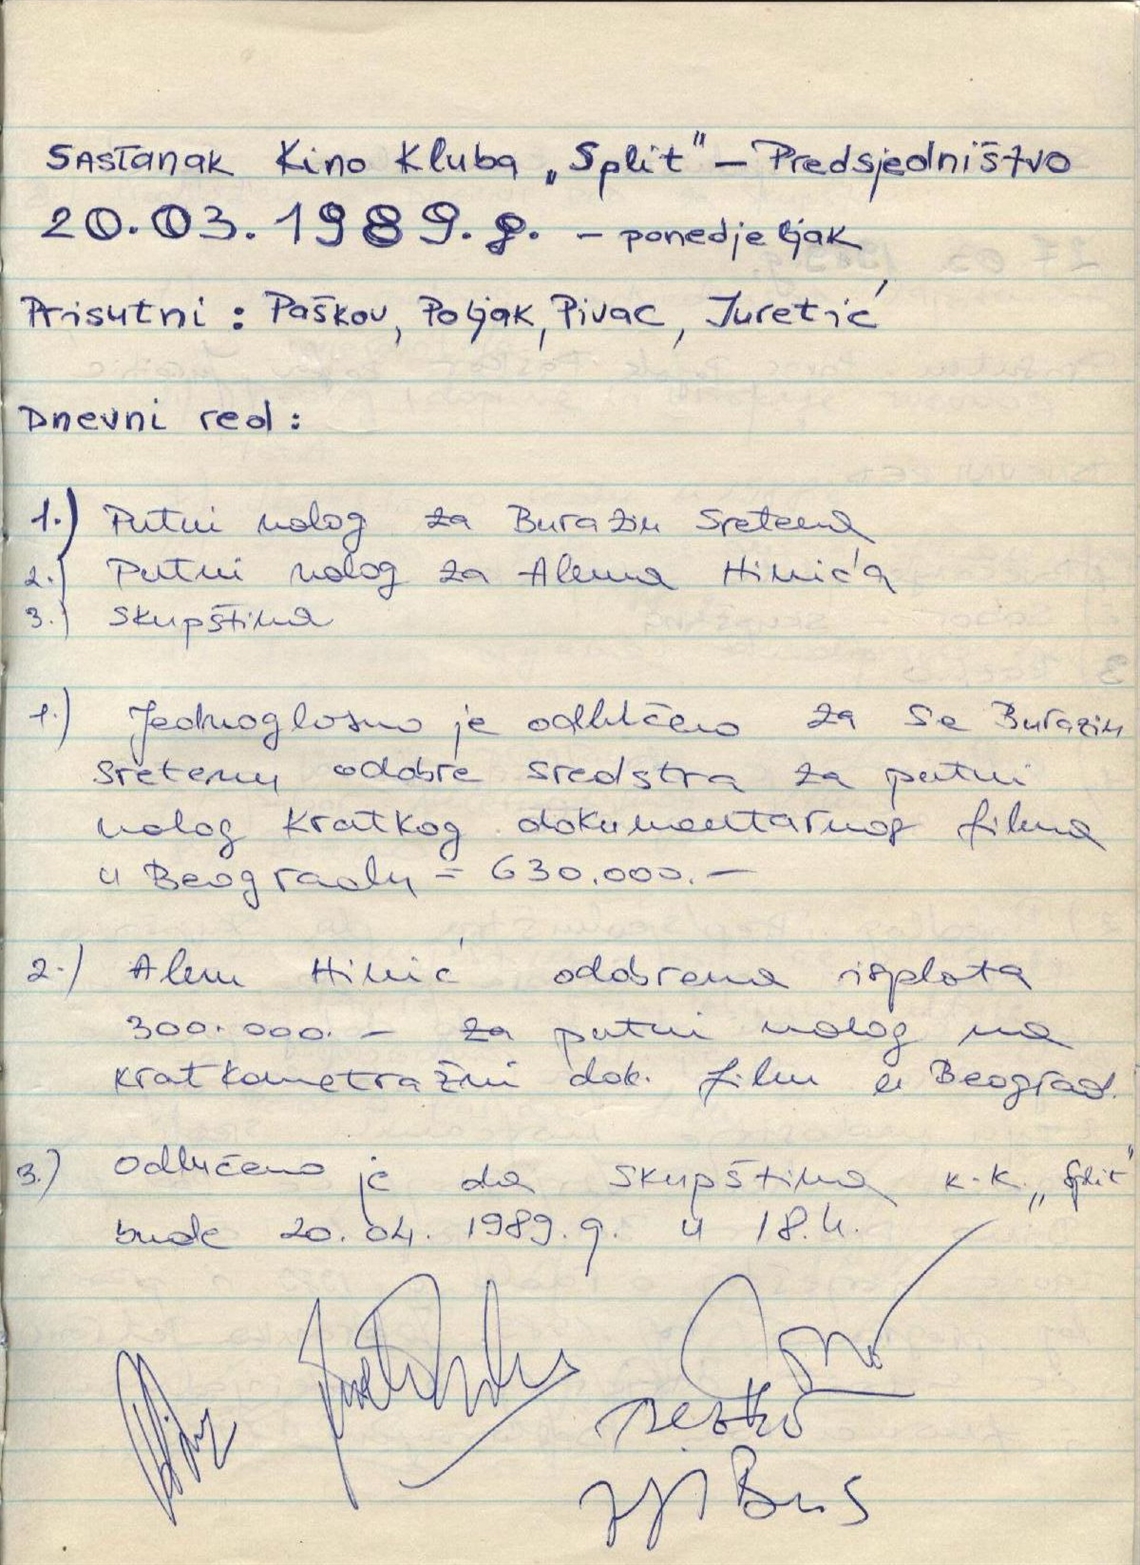 Sastanak Kino Kluba „Split" – Predsjedništvo
20.03.1989.g. – ponedjeljak
Prisutni : Paškov, Poljak, Pivac, Juretić
Dnevni red :
1.) Putni nalog za Burazin Sretena
2.) Putni nalog za Alena Hinić'a
3.) Skupština
1.) Jednoglasno je odlučeno za se Burazin
Sretenu odobre sredstva za putni
nalog kratkog dokumentarnog filma
u Beogradu = 630.000.–
2.) Alen Hinić odobrena isplata
300.000.– za putni nalog na
kratkometražni dok. film u Beograd.
3.) Odlučeno je da skupština K.K. „Split"
bude 20.04.1989.g. u 18.h.